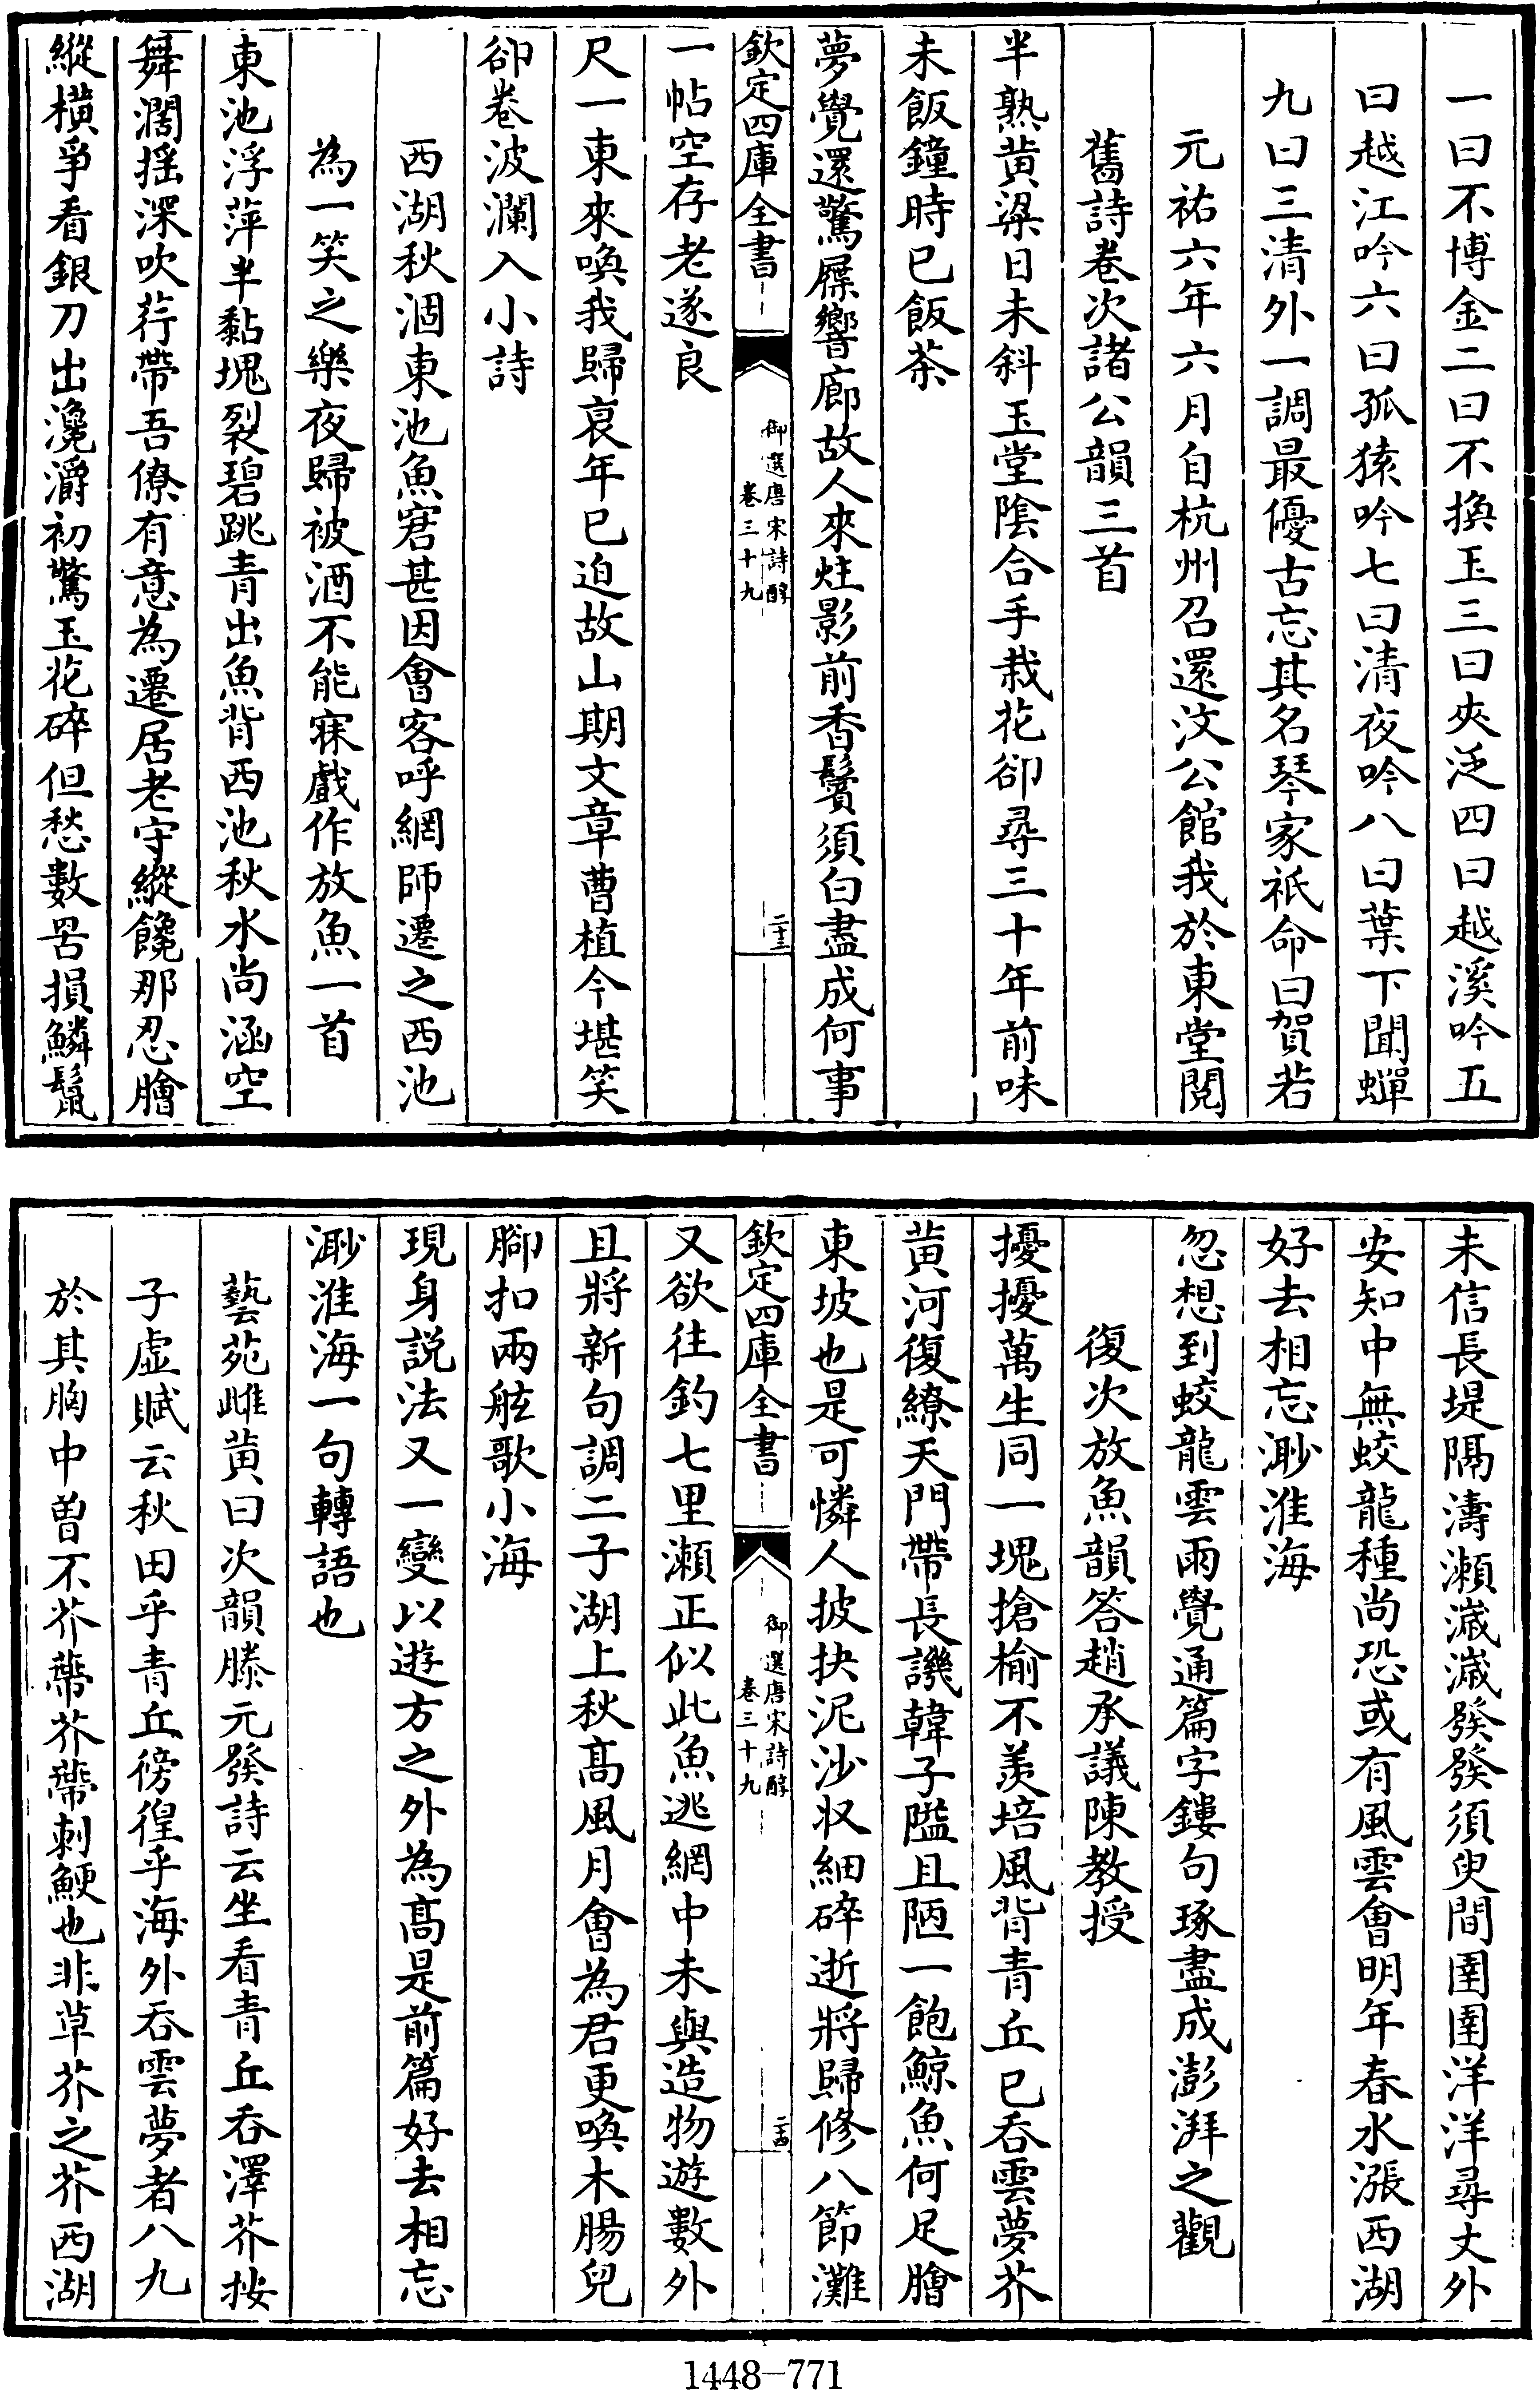 一曰不博金二曰不換玉三曰夾泛四曰越溪吟五
曰越江吟六曰孤猿吟七曰清夜吟八曰葉下聞蟬
九曰三清外一調最優古忘其名琴家祇命曰賀若
元祐六年六月自杭州召還汶公館我於東堂閱
舊詩卷次諸公韻三首
半熟黄粱日未斜玉堂陰合手栽花卻尋三十年前味
未飯鐘時已飯茶
夢覺還驚屧響廊故人來炷影前香鬢須白盡成何事
欽定四庫全書
御選唐宋詩醇
卷三十九
二十三
一帖空存老遂良
尺一東來喚我歸衰年已迫故山期文章曹植今堪笑
卻卷波瀾入小詩
西湖秋涸東池魚窘甚因會客呼網師遷之西池
為一笑之樂夜歸被酒不能寐戲作放魚一首
東池浮萍半黏塊裂碧跳青出魚背西池秋水尚涵空
舞濶搖深吹荇帶吾僚有意為遷居老守縱饞那忍膾
縱横爭看銀刀出瀺灂初驚玉花碎但愁數罟損鱗鬛
未信長堤隔濤瀨濊濊發發須臾間圉圉洋洋尋丈外
安知中無蛟龍種尚恐或有風雲會明年春水漲西湖
好去相忘渺淮海
忽想到蛟龍雲雨覺通篇字鏤句琢盡成澎湃之觀
復次放魚韻答趙承議陳教授
擾擾萬生同一塊搶榆不羨培風背青丘已吞雲夢芥
黄河復繚天門帶長譏韓子隘且陋一飽鯨魚何足膾
東坡也是可憐人披抉泥沙收細碎逝將歸修八節灘
欽定四庫全書
御選唐宋詩醇
卷三十九
二十四
又欲往釣七里瀨正似此魚逃網中未與造物遊數外
且將新句調二子湖上秋髙風月會為君更喚木腸兒
腳扣兩舷歌小海
現身説法又一變以遊方之外為髙是前篇好去相忘
渺淮海一句轉語也
藝苑雌黄曰次韻滕元發詩云坐看青丘吞澤芥按
子虛賦云秋田乎青丘傍徨乎海外吞雲夢者八九
於其胸中曾不芥蔕芥蔕刺鯁也非草芥之芥西湖
1448-771